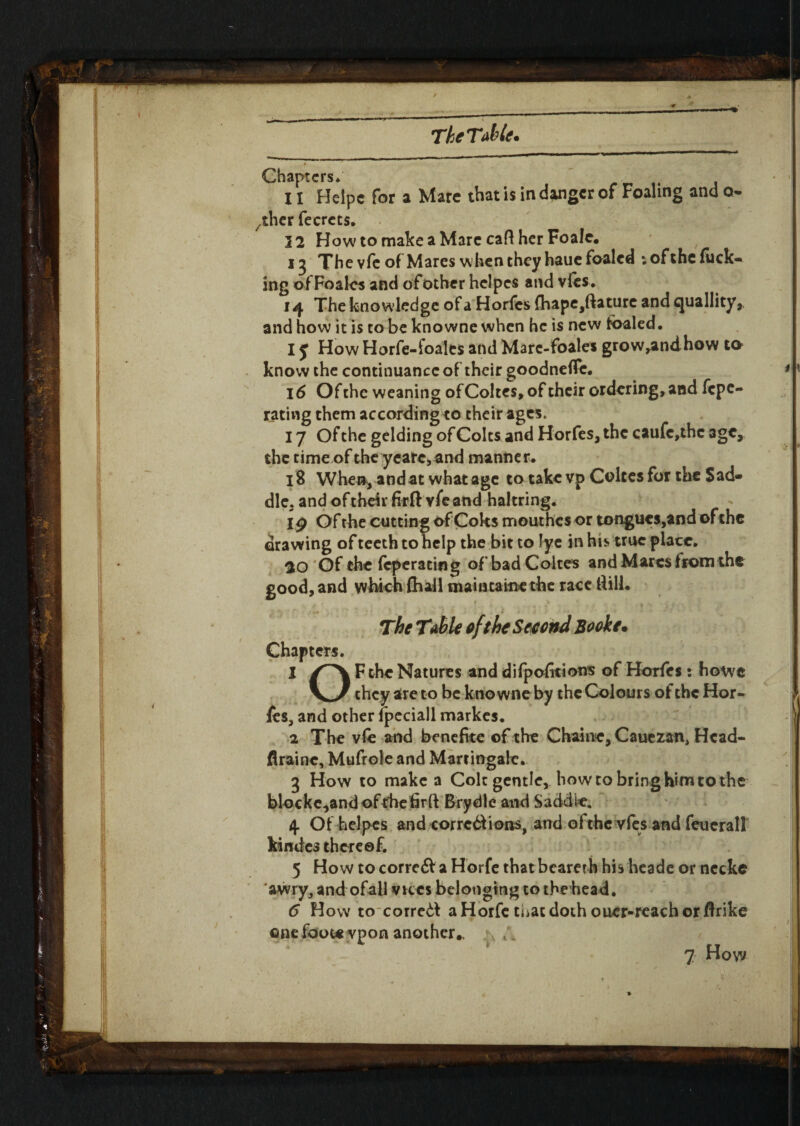 The Table.
Chapters.
11 Helpe for a Mare that is in danger of Foaling and o-
ther ſecrets.
12 How to make a Mare caſt her Foale.
13 The vſe of Mares when they haue foaled : of the ſuck-
ing of Foales and of other helpes and vſes.
14 The knowledge of a Horſes ſhape, ſtature and quallity,
and how it is to be knowne when he is new foaled.
15 How Horſe-foales and Mare-foales grow, and how to
know the continuance of their goodneſſe.
16 Of the weaning of Coltes, of their ordering, and ſepe-
rating them according to their ages.
17 Of the gelding of Colts and Horſes, the cauſe, the age,
the time of the yeare, and manner.
18 When, and at what age to take vp Coltes for the Sad-
dle, and of their firſt vſe and haltring.
19 Of the cutting of Colts mouthes or tongues, and of the
drawing of teeth to help the bit to lye in his true place.
20 Of the ſeperating of bad Coltes and Mares from the
good, and which ſhall maintaine the race ſtill.
The Table of the Second Booke.
Chapters.
1 OF the Natures and diſpoſitions of Horſes : howe
they are to be knowne by the Colours of the Hor-
ſes, and other ſpeciall markes.
2 The vſe and benefite of the Chaine, Cauezan, Head-
ſtraine, Muſrole and Martingale.
3 How to make a Colt gentle, how to bring him to the
blocke, and of the firſt Brydle and Saddle.
4 Of helpes and corrections, and of the vſes and ſeuerall
kindes thereof.
5 How to correct a Horſe that beareth his heade or necke
awry, and of all vices belonging to the head.
6 How to correct a Horſe that doth ouer-reach or ſtrike
one foote vpon another.
7 How